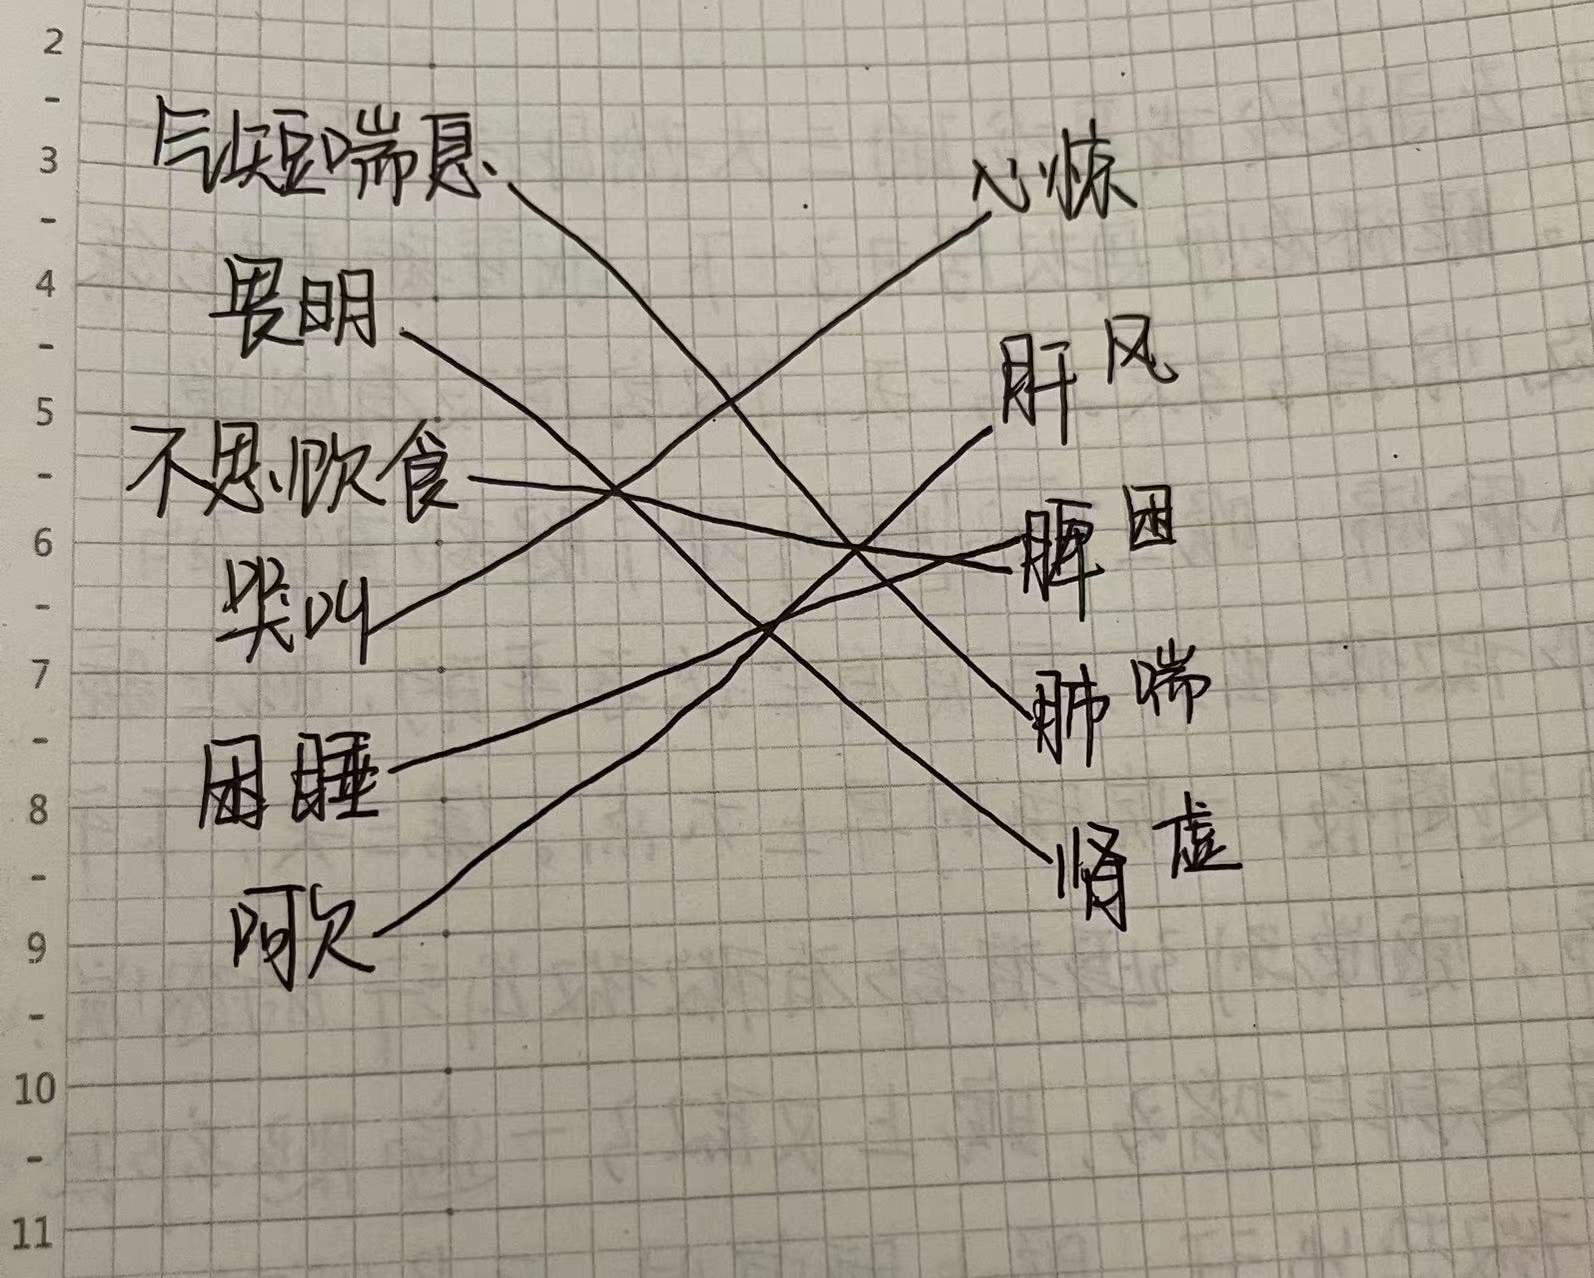 2
3
气短喘息
心悚
4
畏明
肝风
5
不思饮食
6
脾困
哭叫
7
肺喘
困睡
8
肾虚
呵欠
9
10
11